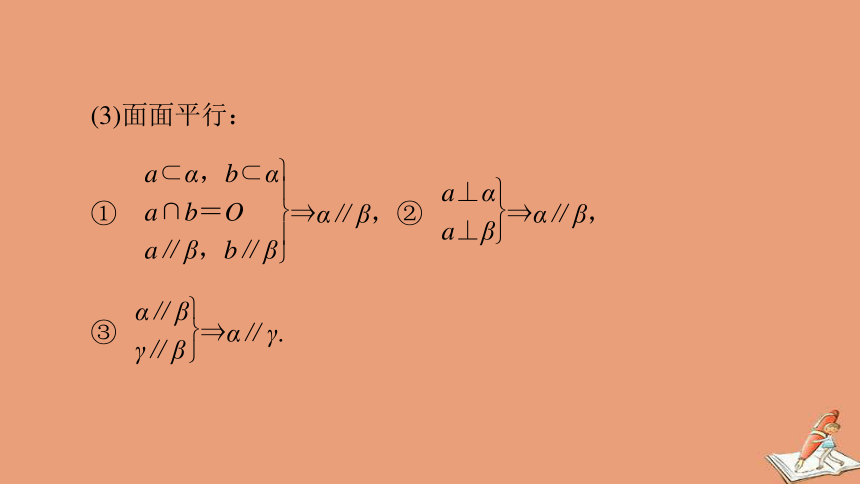 (3)面面平行：
① a⊂α，b⊂α
a∩b＝O
a∥β，b∥β }⇒α∥β，② a⊥α
a⊥β }⇒α∥β，
③ α∥β
γ∥β }⇒α∥γ.